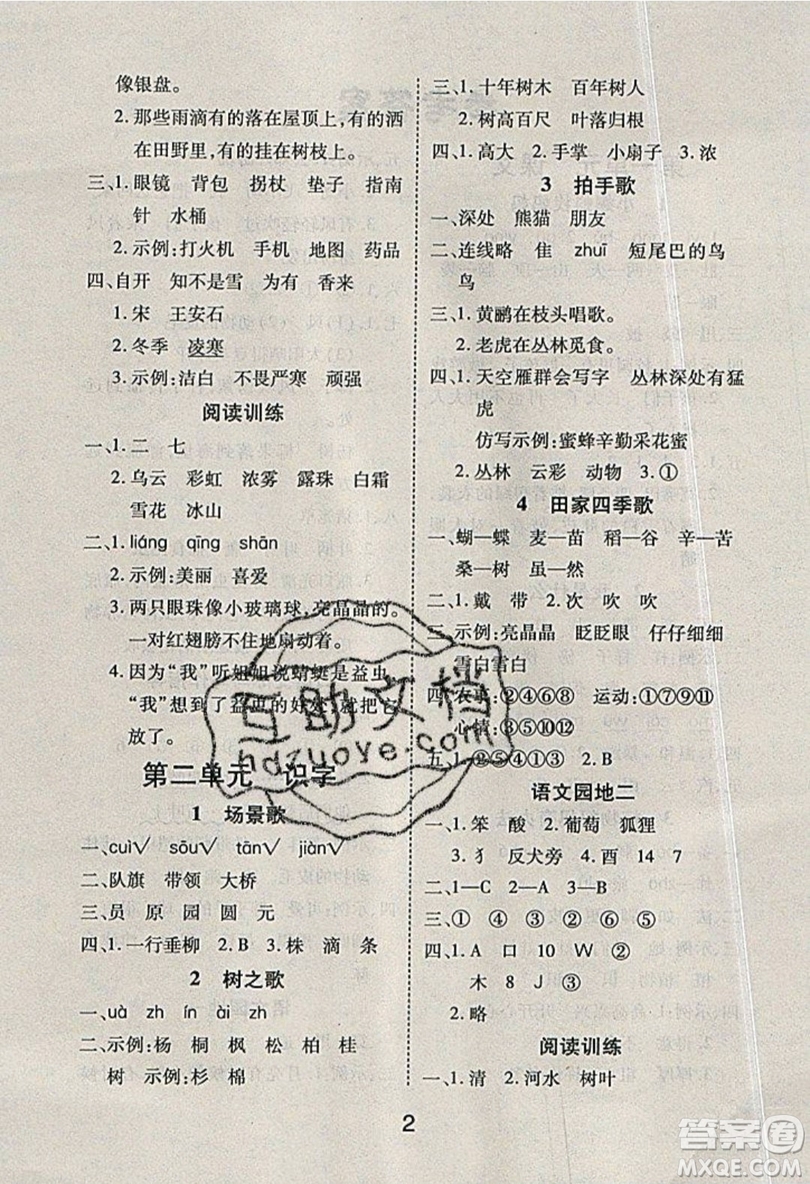 像银盘。
2. 那些雨滴有的落在屋顶上,有的洒
在田野里,有的挂在树枝上。
三、1. 眼镜 背包 拐杖 垫子 指南
针 水桶
2. 示例:打火机 手机 地图 药品
四、自开 知不是雪 为有 香来
1. 宋 王安石
2. 冬季 凌寒
3. 示例:洁白 不畏严寒 顽强
阅读训练
一、1. 二 七
2. 乌云 彩虹 浓雾 露珠 白霜
雪花 冰山
二、1. liáng qīng shān
2. 示例:美丽 喜爱
3. 两只眼珠像小玻璃球,亮晶晶的。
一对红翅膀不住地扇动着。
4. 因为“我”听姐姐说蜻蜓是益虫
“我”想到了益虫的好处,就把它
放了。
第二单元 识字
1 场景歌
一、cuì√ sōu√ tān√ jiàn√
二、队旗 带领 大桥
三、员 原 园 圆 元
四、1. 一行垂柳 2. B 3. 株 滴 条
2 树之歌
一、uà zh ín ài zh
二、示例:杨 桐 枫 松 柏 桂
树 示例:杉 棉
三、1. 十年树木 百年树人
2. 树高百尺 叶落归根
四、1. 高大 2. 手掌 小扇子 3. 浓
3 拍手歌
一、深处 熊猫 朋友
二、连线略 隹 zhuī 短尾巴的鸟
鸟
三、1. 黄鹂在枝头唱歌。
2. 老虎在丛林觅食。
四、1. 天空雁群会写字 丛林深处有猛
虎
仿写示例:蜜蜂辛勤采花蜜
2. 丛林 云彩 动物 3. ①
4 田家四季歌
一、蝴—蝶 麦—苗 稻—谷 辛—苦
桑—树 虽—然
二、1. 戴 带 2. 次 吹 吹
三、示例:亮晶晶 眨眨眼 仔仔细细
雪白雪白
四、农事:②④⑥⑧ 运动:①⑦⑨⑪
心情:③⑤⑩⑫
五、1. ②⑤④①③ 2. B
语文园地二
一、1. 笨 酸 2. 葡萄 狐狸
3. 犭 反犬旁 4. 酉 14 7
二、1—C 2—A 3—B
三、① ④ ② ⑤ ③ ⑥
四、1. A 口 10 W ②
木 8 J ③
2. 略
阅读训练
一、1. 清 2. 河水 树叶
2
互助文档
hdzuoye.com
答案圈
MXQE.COM